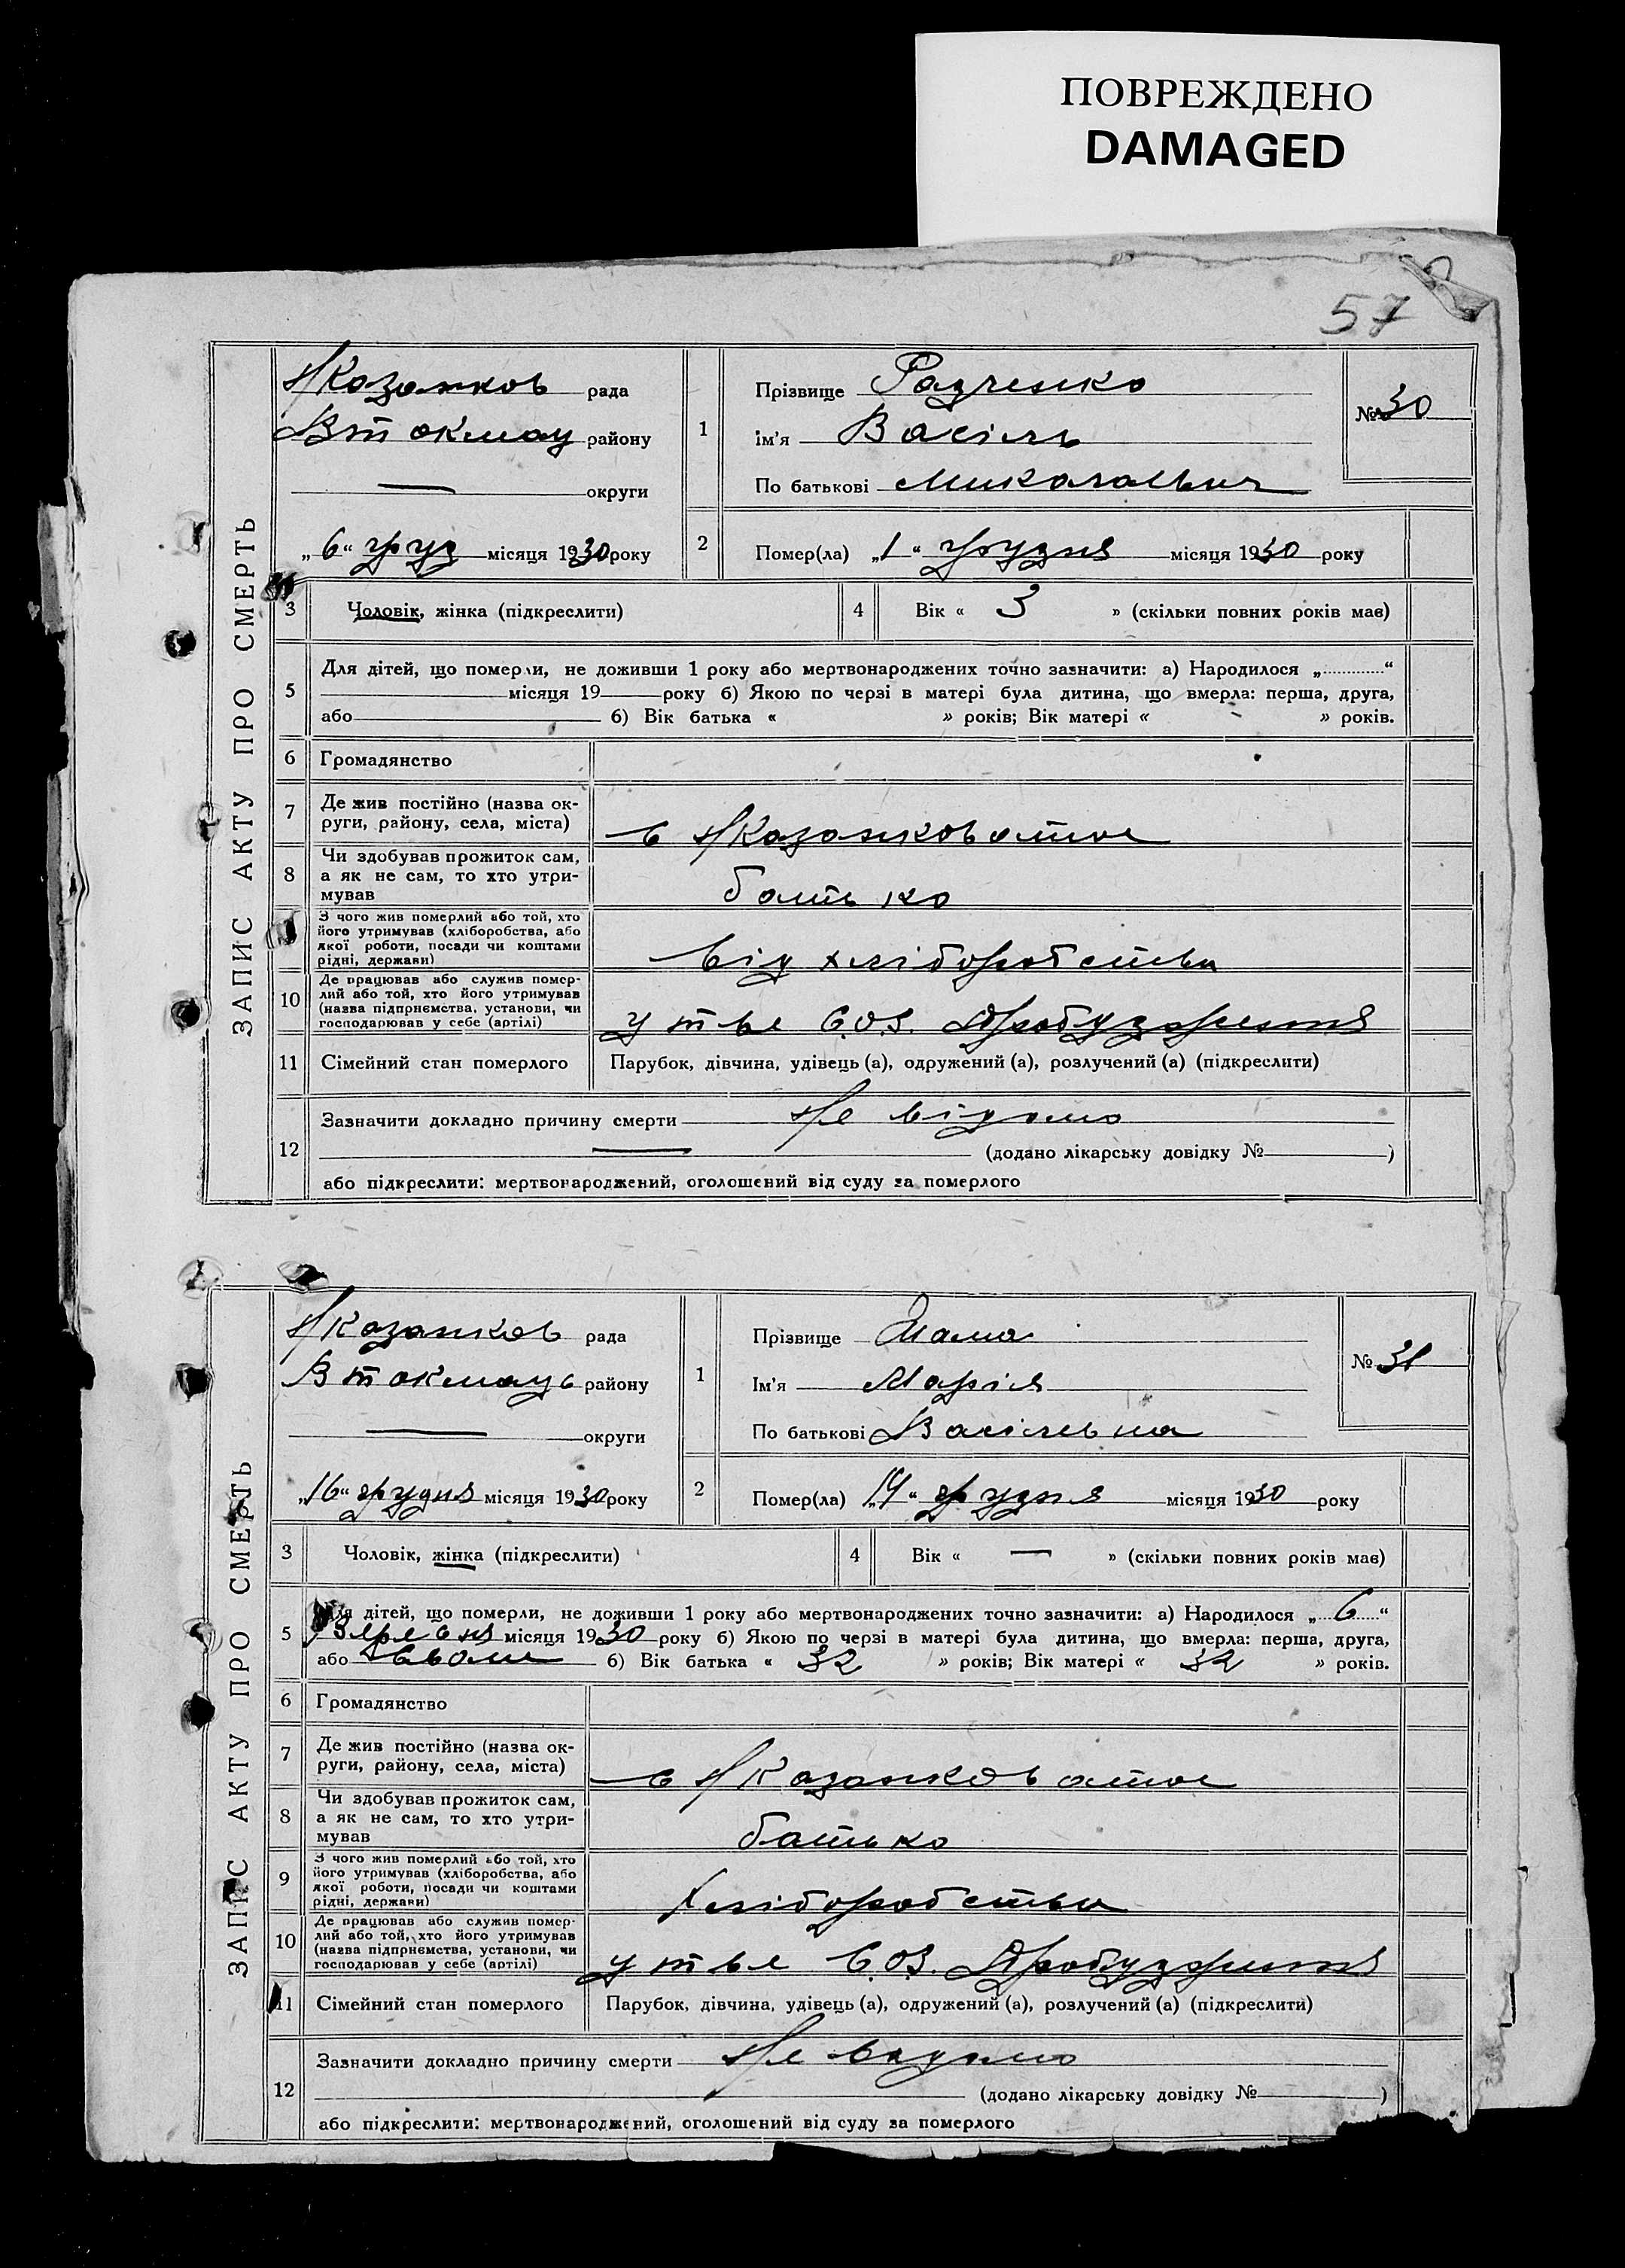 ПОВРЕЖДЕНО
DAMAGED
57
ЗАПИС АКТУ ПРО СМЕРТЬ
Н/Козанков рада
Вток мау району
— округи
„6“ груд місяця 1930 року
1 Прізвище Радченко
ім’я Васіль
По батькові Миколаевич
№ 30
2 Помер(ла) „1“ грудня місяця 1930 року
3 Чоловік, жінка (підкреслити)
4 Вік « 3 » (скільки повних років має)
5 Для дітей, що померли, не доживши 1 року або мертвонароджених точно зазначити: а) Народилося „ “
місяця 19 року б) Якою по черзі в матері була дитина, що вмерла: перша, друга,
або б) Вік батька « » років; Вік матері « - » років.
6 Громадянство
7 Де жив постійно (назва ок-
руги, району, села, міста)
в Н/Козанковатое
8 Чи здобував прожиток сам,
а як не сам, то хто утри-
мував
батько
З чого жив померлий або той, хто
його утримував (хліборобства, або
якої роботи, посади чи коштами
рідні, держави)
від хліборобства
10 Де працював або служив помер-
лий або той, хто його утримував
(назва підприємства, установи, чи
господарював у себе (артілі)
у С.О.З.
11 Сімейний стан померлого
Парубок, дівчина, удівець (а), одружений (а), розлучений (а) (підкреслити)
12 Зазначити докладно причину смерти Не відомо
— (додано лікарську довідку № )
або підкреслити: мертвонароджений, оголошений від суду за померлого
ЗАПИС АКТУ ПРО СМЕРТЬ
Н/Козанков рада
Вток мац району
— округи
„16“ грудня місяця 1930 року
1 Прізвище
Ім’я Марія
По батькові Васілевна
№ 31
2 Помер(ла) „14“ грудня місяця 1930 року
3 Чоловік, жінка (підкреслити)
4 Вік « — » (скільки повних років має)
5 Для дітей, що померли, не доживши 1 року або мертвонароджених точно зазначити: а) Народилося „6“
місяця 1930 року б) Якою по черзі в матері була дитина, що вмерла: перша, друга,
або б) Вік батька « 32 » років; Вік матері « 32 » років.
6 Громадянство
7 Де жив постійно (назва ок-
руги, району, села, міста)
в Н/Козанковатое
8 Чи здобував прожиток сам,
а як не сам, то хто утри-
мував
батько
9 З чого жив померлий або той, хто
його утримував (хліборобства, або
якої роботи, посади чи коштами
рідні, держави)
Хліборобства
10 Де працював або служив помер-
лий або той, хто його утримував
(назва підприємства, установи, чи
господарював у себе (артілі)
у С.О.З.
11 Сімейний стан померлого
Парубок, дівчина, удівець (а), одружений (а), розлучений (а) (підкреслити)
12 Зазначити докладно причину смерти Не видомо
(додано лікарську довідку № )
або підкреслити: мертвонароджений, оголошений від суду за померлого